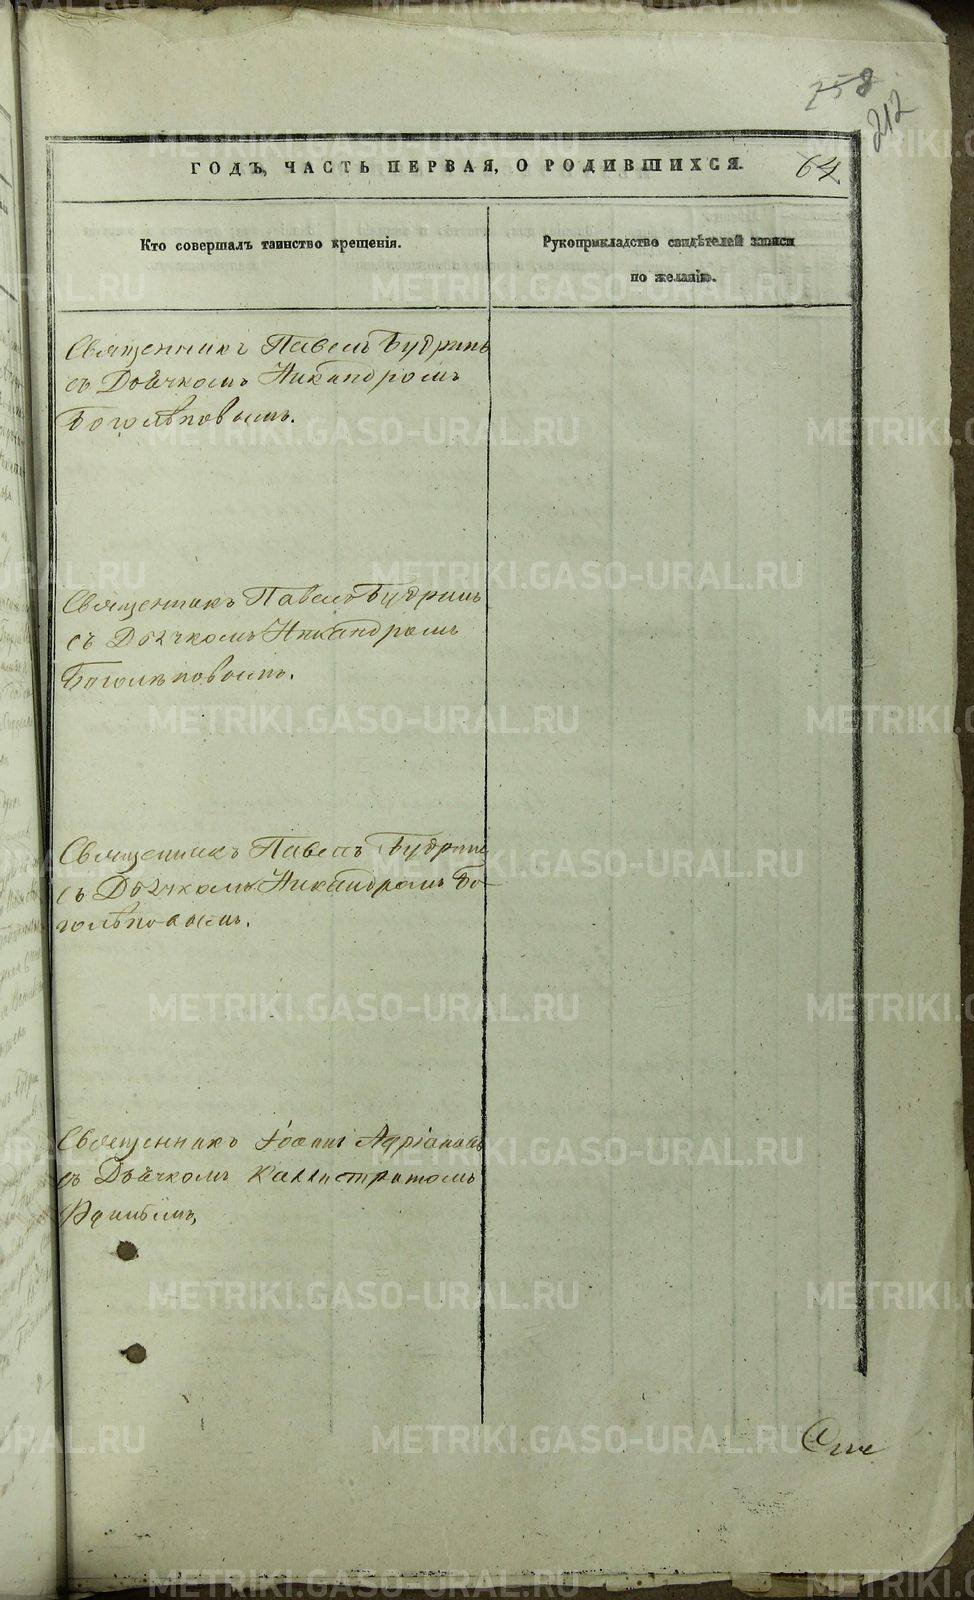 758
212
ГОДЪ, ЧАСТЬ ПЕРВАЯ, О РОДИВШИХСЯ.
64
Кто совершалъ таинство крещенія.
Рукоприкладство свидѣтелей записи
по желанію.
Священникъ Павелъ Будринъ
съ Дьячкомъ Никандромъ
Боголѣповымъ.
Священникъ Павелъ Будринъ
съ Дьячкомъ Никандромъ
Боголѣповымъ.
Священникъ Павелъ Будринъ
съ Дьячкомъ Никандромъ Бо-
голѣповымъ.
Священникъ Іоаннъ Адріановъ
съ Дьячкомъ Каллистратомъ
METRIKI.GASO-URAL.RU